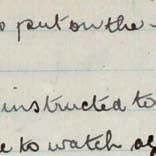 put on the
instructed to
to watch